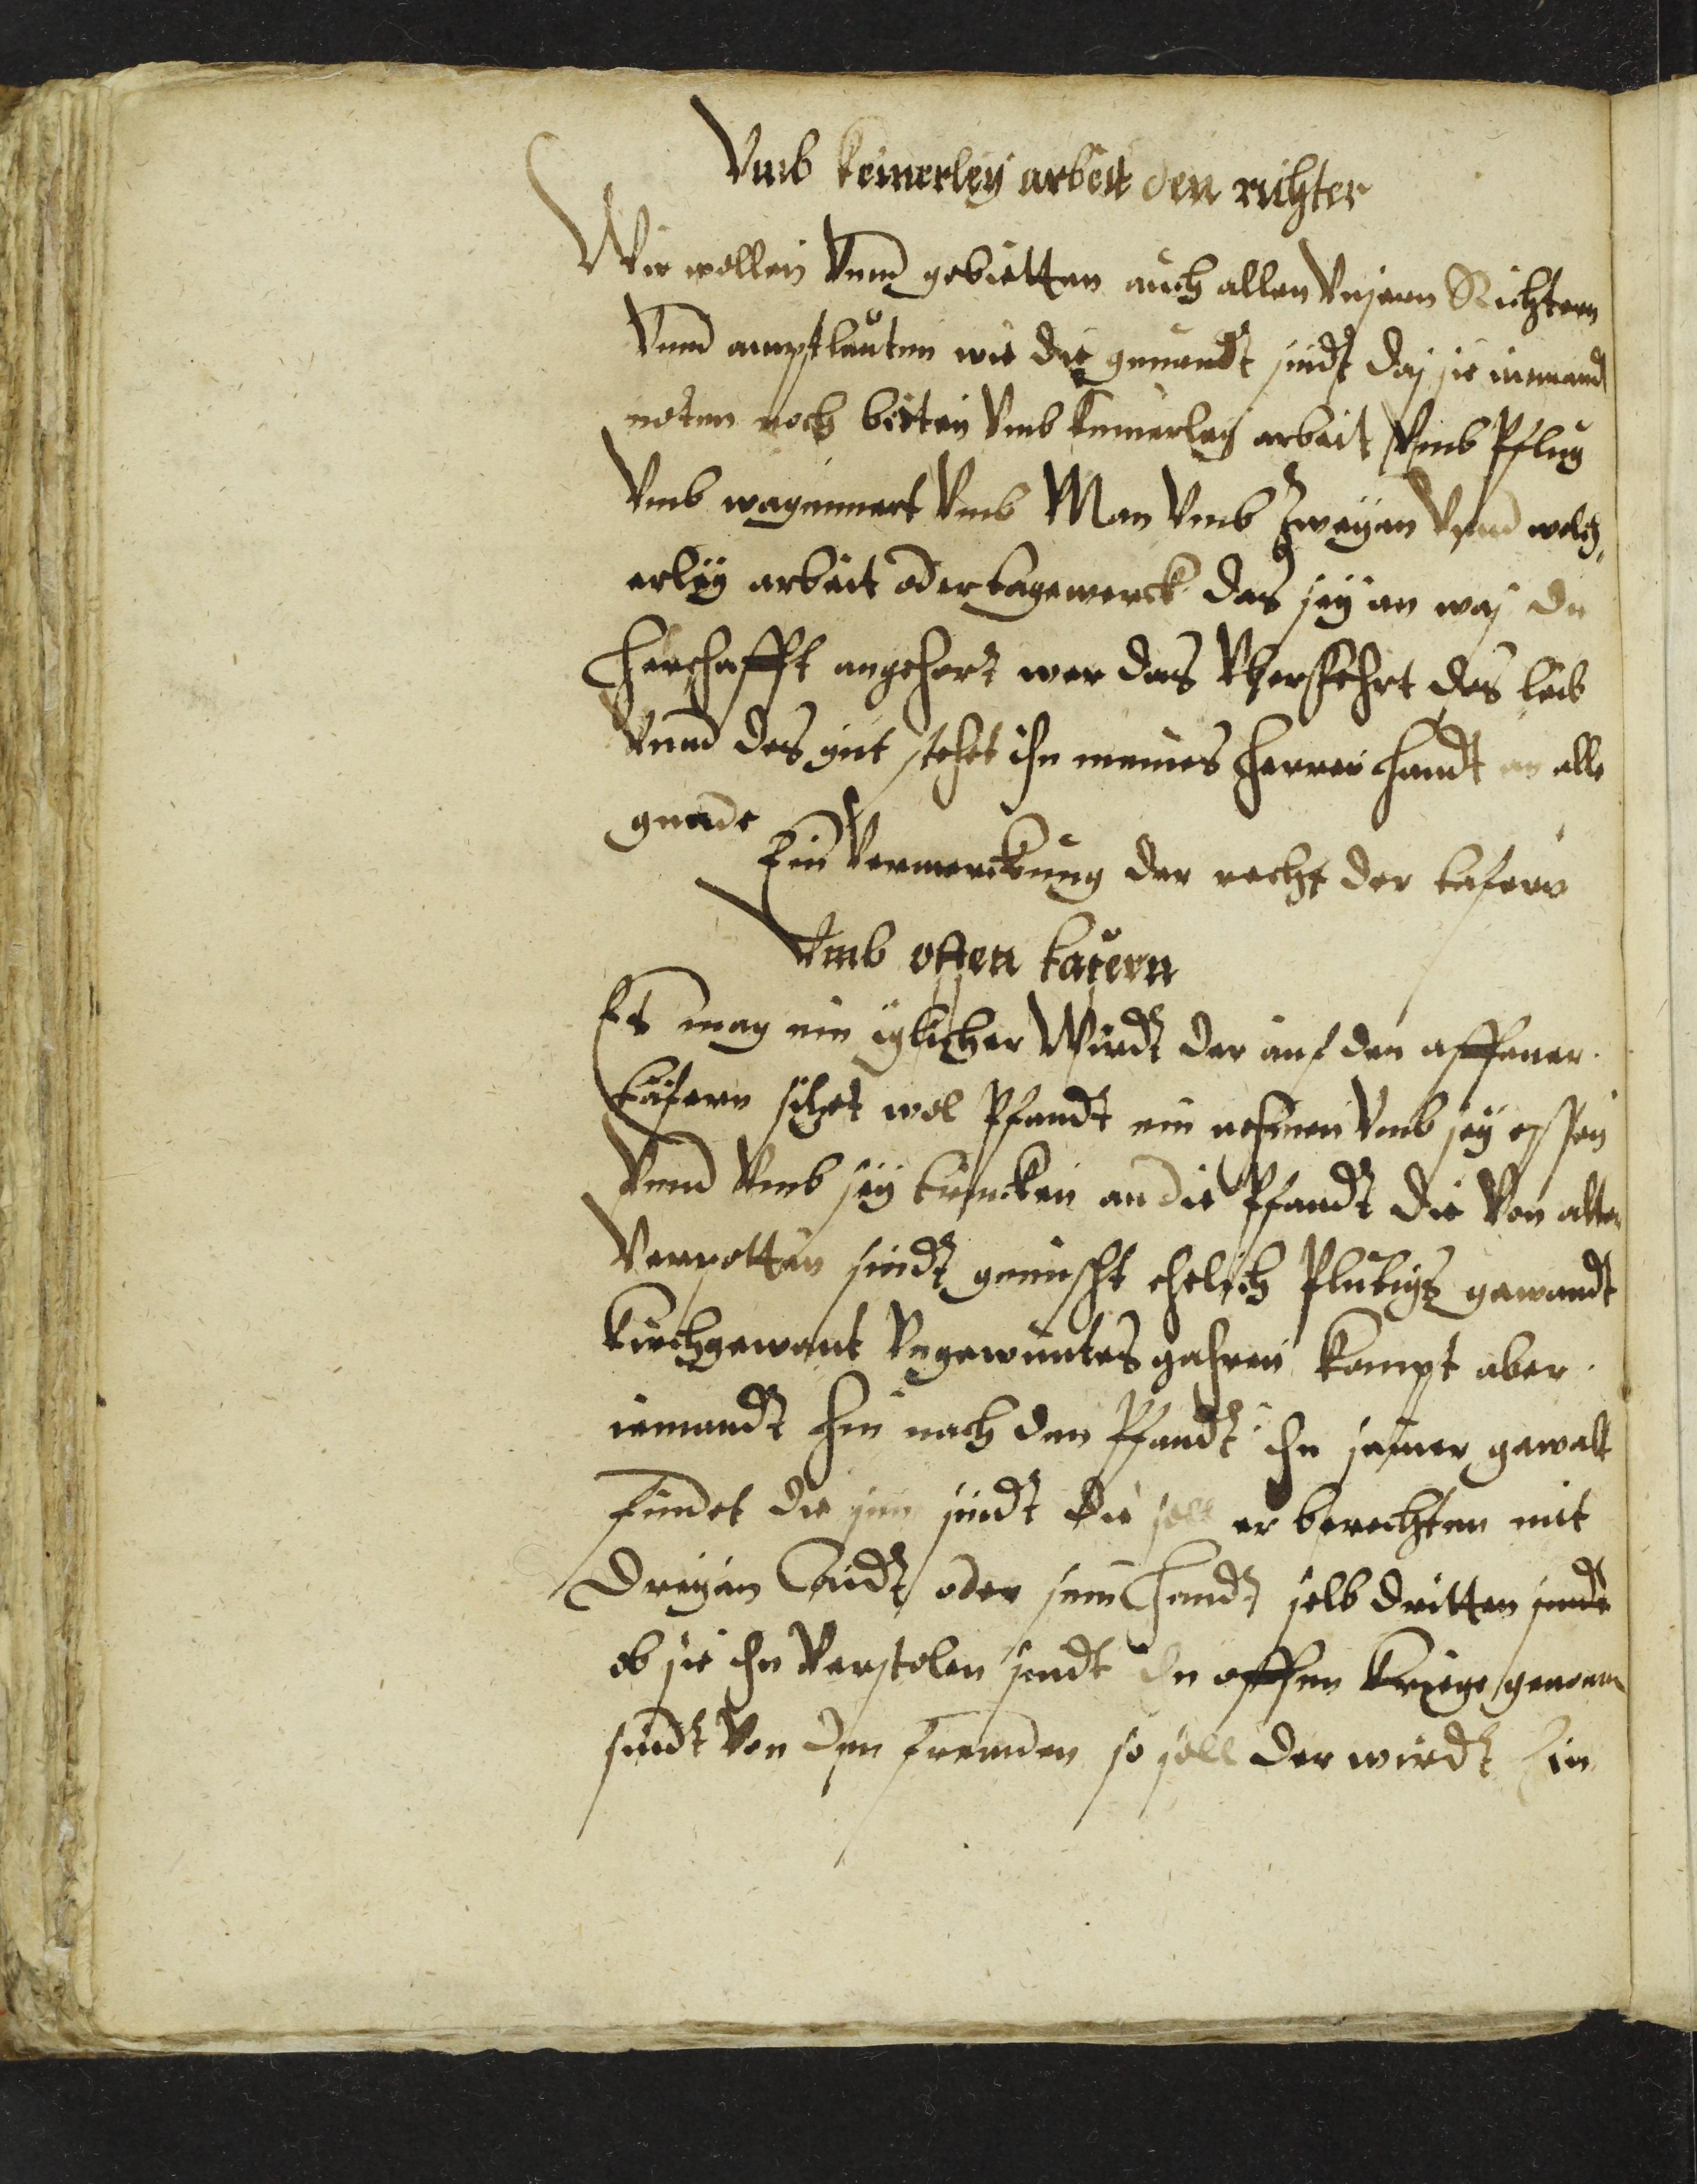 Vmb keinerley arbeit den richter
Wir wellen Vnnd gebietten auch allen Vnsern Richtern
Vnnd amptleuten wie die genandt sindt das sie niemandt
noten noch bitten Vmb keinerley arbeit Vmb Pflug
Vmb wagennert Vmb Man Vmb Zweyen Vnnd welch¬
erley arbeit oder tagewerck das sey an was die
herschafft angehort wer das Vberfehrt des leib
Vnnd des gut stehet ihn meines herren handt an alle
gnade
Ein Vermerckung der recht der tafern
Vmb offen tafern
Es mag ein iglicher Wirdt der auf der offener
tafern sitzet wol Pfandt ein nehmen Vmb sey essen
Vnnd Vmb sey trincken an die Pfandt die Von alter
Verpotten sindt gemischt kelich Plutigs gewandt
Kirchgewant Vngewuntes gahren kompt aber
iemandt hin nach dem Pfandt ihn seiner gewalt
findet die sein sindt die soll er berechten mit
Dreyen Aidt oder sein handt selb dritten sindt
ob sie ihn Verstolen sindt In offen Kriege genomen
sindt Von den fremden so soll der wirdt Ein